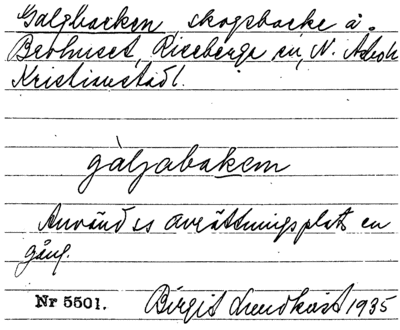 Galgbacken, skogsbacke å
Benhuset, Riseberga sn, N. Åsbo h
Kristianstads l.
gàljabakem
Använd ss avrättningsplats en
gång.
Nr 5501. Birgit Lundkvist 1935